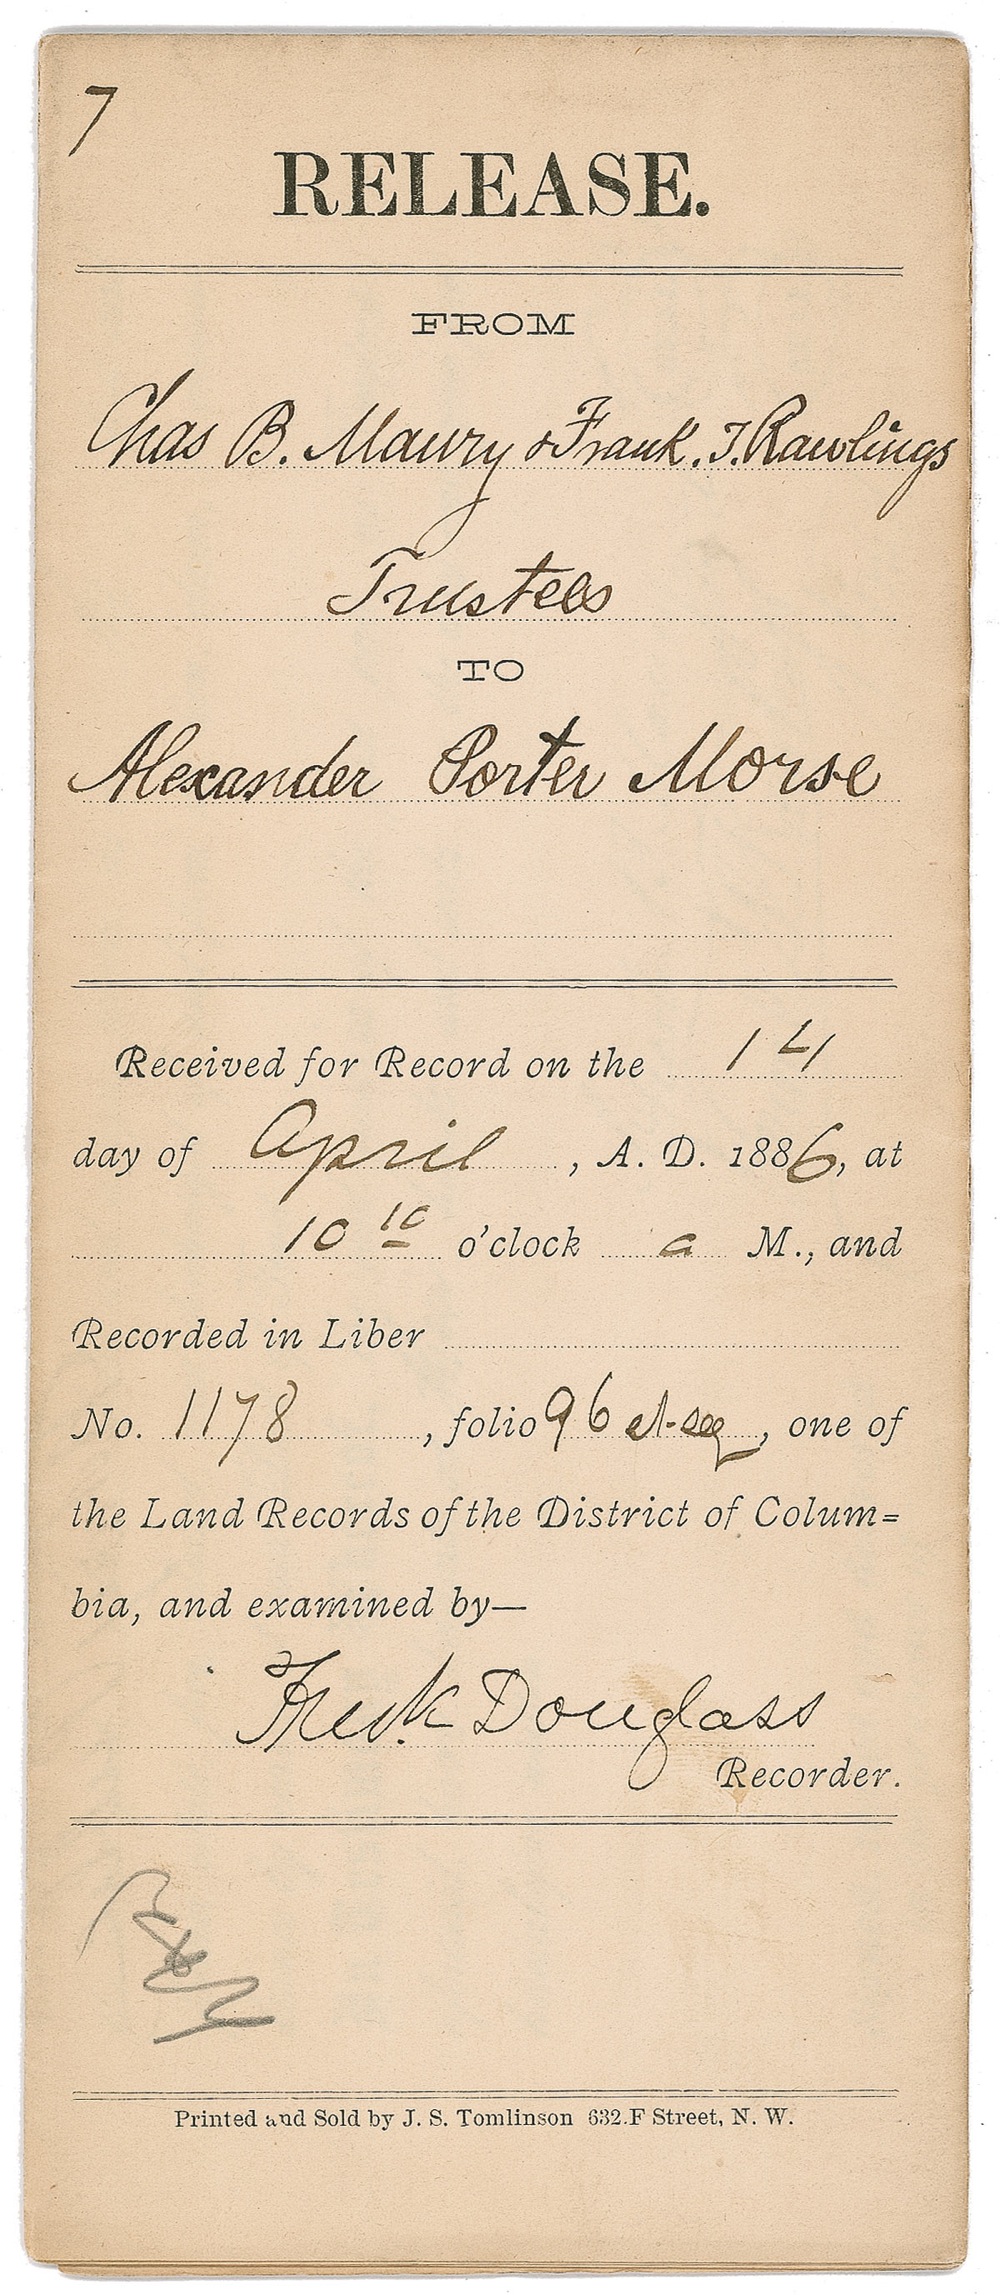 7
RELEASE.
FROM
Chas B. Maury & Frank. T. Rawlings
Trustees
TO
Alexander Porter Morse
Received for Record on the 14
day of April, A. D. 1886, at
10 10 o'clock a M., and
Recorded in Liber
No. 1178, folio 96 et-seq, one of
the Land Records of the District of Colum=
bia, and examined by—
Fredk. Douglass
Recorder.
Printed and Sold by J. S. Tomlinson 632.F Street, N. W.